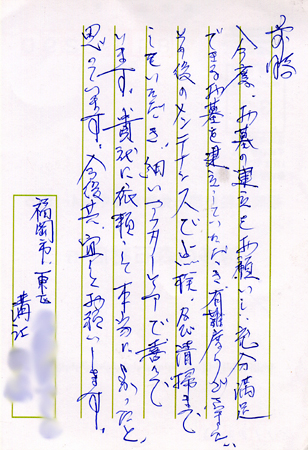 前略
今度、お墓の建立をお願いし、充分満足
できるお墓を建立していただき有難度うございます。
その後のメンテナンスで点検、及清掃まで
していただき、細いアフターケアで喜んで
います。貴社に依頼して本当によかったと、
思っています。今後共、宜しくお願いします。
福岡市東区
溝江